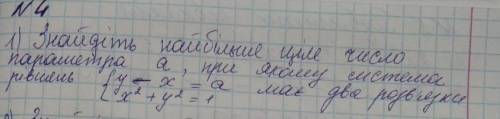 №4
1) Знайдіть найбільше ціле число
параметра а, при якому система
рівнень { y - x = a має два розв'язки
x² + y² = 1